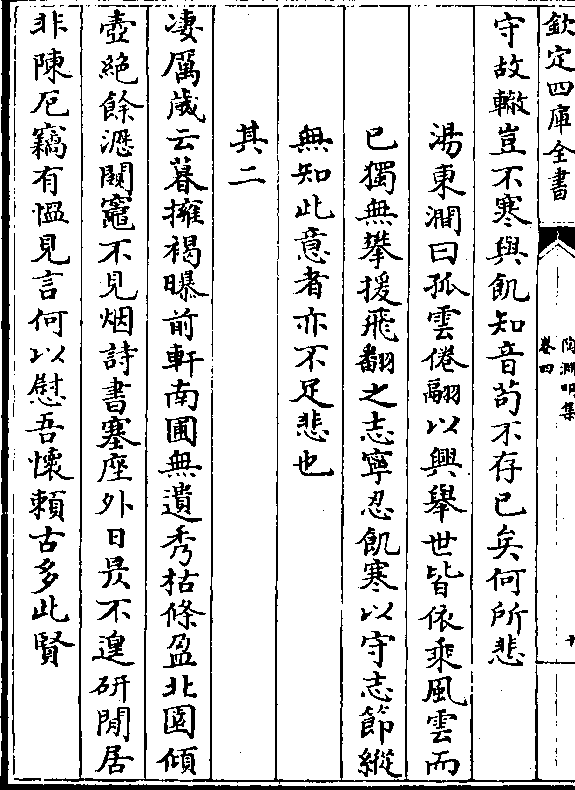 欽定四庫全書
陶淵明集
卷四
十
守故轍豈不寒與飢知音茍不存已矣何所悲
湯東澗曰孤雲倦翮以興舉世皆依乘風雲而
已獨無攀援飛翻之志寧忍飢寒以守志節縱
無知此意者亦不足悲也
其二
淒厲歲云暮擁褐曝前軒南圃無遺秀枯條盈北園傾
壺絶餘瀝闚竈不見烟詩書塞座外日昃不遑研閒居
非陳厄竊有愠見言何以慰吾懷頼古多此賢